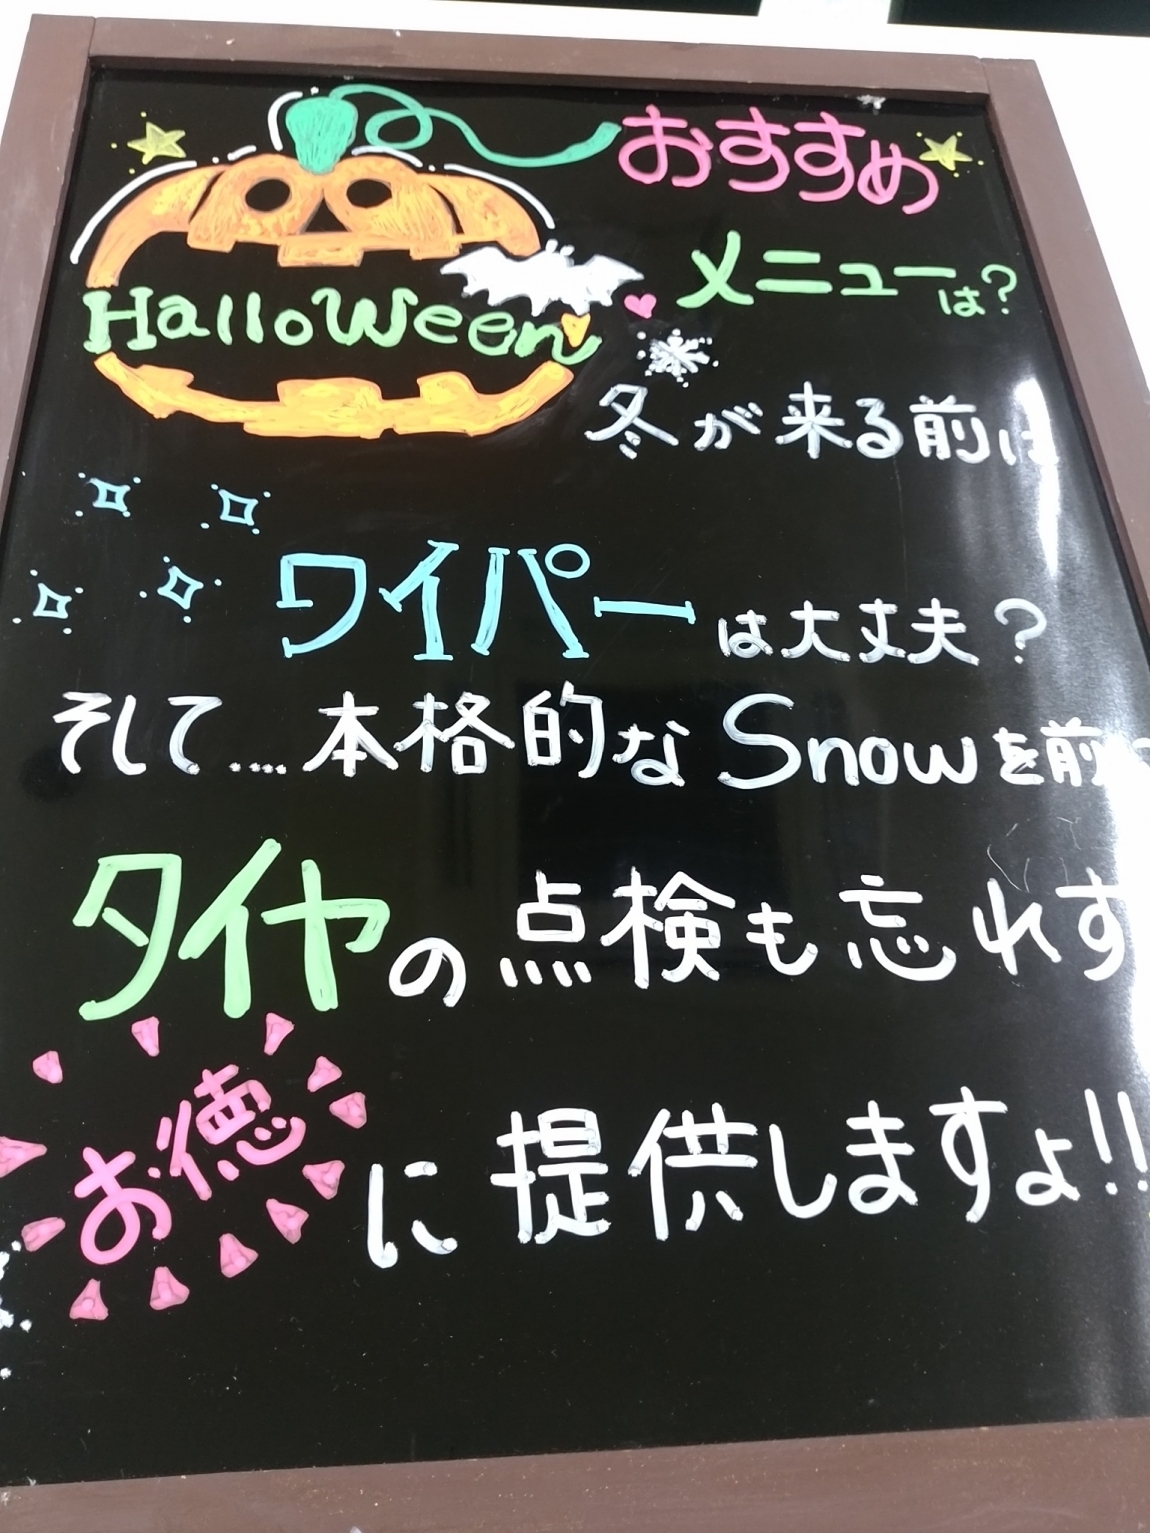 おすすめ
メニューは?
HalloWeen
冬が来る前は
ワイパーは大丈夫?
そして....本格的なSnowを前
タイヤの点検も忘れず
お徳に提供しますょ!!